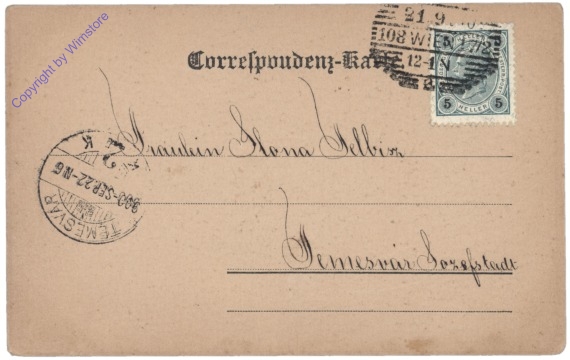 Copyright by Wimstore
21.9
108 WIEN 7/2
12-1N
Correspondenz-Karte
5 HELLER 5
Fräulein Ilona Selbiz
900-SEP.22-N6
TEMESVÁR
Temesvár Josefstadt